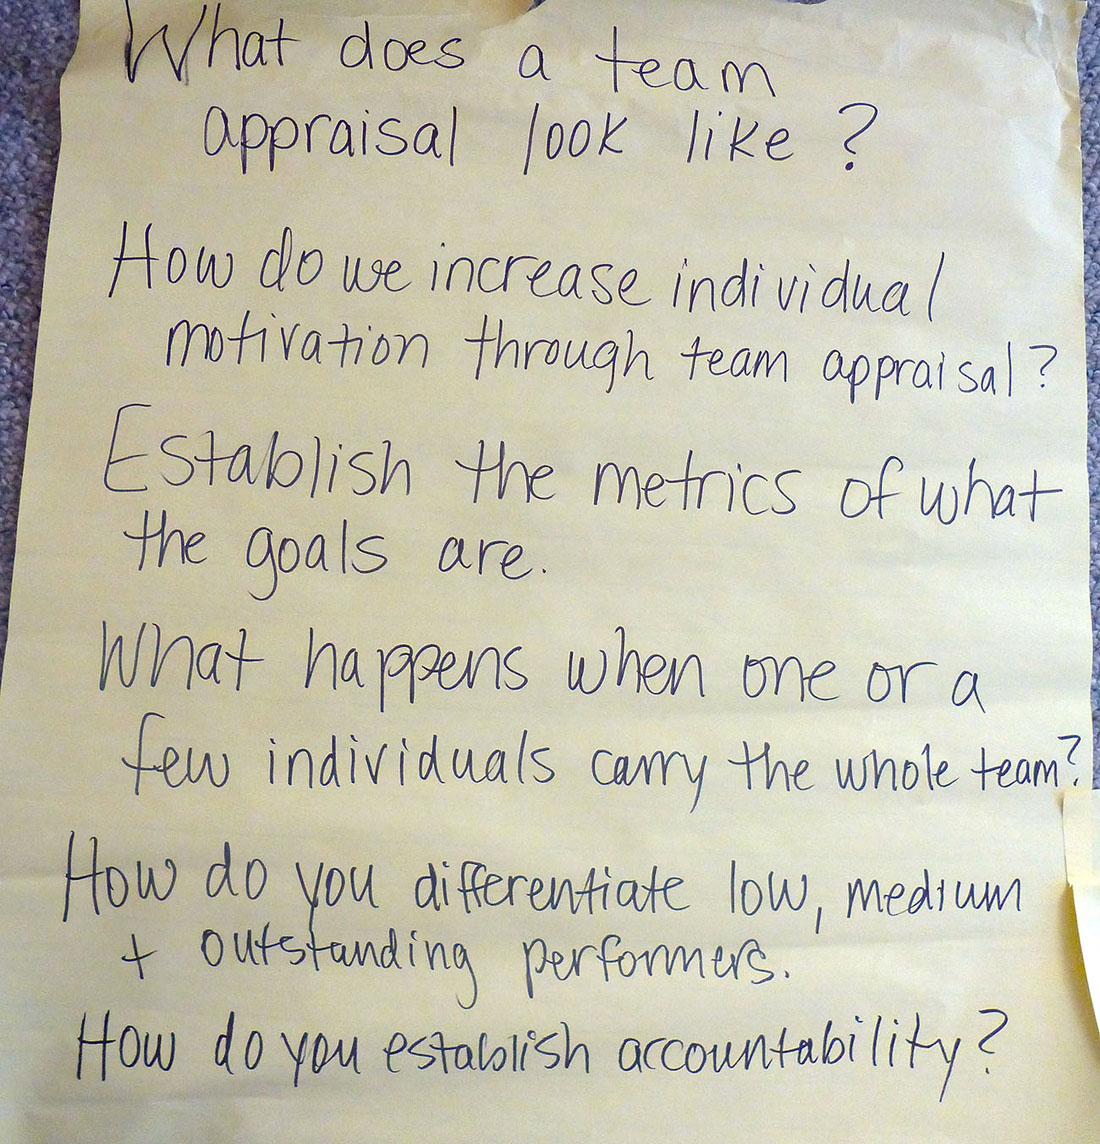 What does a team
appraisal look like?
How do we increase individual
motivation through team appraisal?
Establish the metrics of what
the goals are.
What happens when one or a
few individuals carry the whole team?
How do you differentiate low, medium
+ outstanding performers.
How do you establish accountability?